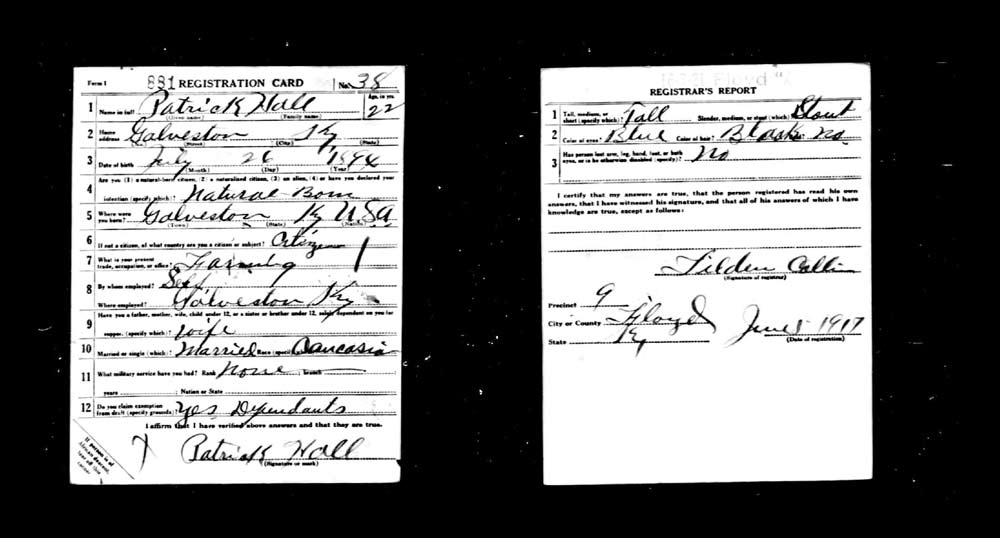 Form 1 881 REGISTRATION CARD No. 38
1 Name in full Patrick Hall Age, in yrs. 22
(Given name) (Family name)
2 Home address Galveston Ky
(Street) (City) (State)
3 Date of birth July 26 1894
(Month) (Day) (Year)
Are you (1) a natural-born citizen, (2) a naturalized citizen, (3) an alien, (4) or have you declared your
4 intention (specify which)? Natural Born
5 Where were you born? Galveston Ky USA
(Town) (State) (Nation)
6 If not a citizen, of what country are you a citizen or subject? Citizen
7 What is your present trade, occupation, or office? Farming
8 By whom employed? Self
Where employed? Galveston Ky
Have you a father, mother, wife, child under 12, or a sister or brother under 12, solely dependent on you for
9 support (specify which)? wife
10 Married or single (which)? Married Race (specify which)? Caucasia
11 What military service have you had? Rank None ; branch
years ; Nation or State
12 Do you claim exemption from draft (specify grounds)? Yes Dependants
I affirm that I have verified above answers and that they are true.
X Patrick Hall
(Signature or mark)
If person is of African descent, tear off this corner
REGISTRAR'S REPORT
1 Tall, medium, or short (specify which)? Tall Slender, medium, or stout (which)? Stout
2 Color of eyes? Blue Color of hair? Black Bald? No
3 Has person lost arm, leg, hand, foot, or both eyes, or is he otherwise disabled (specify)? No
I certify that my answers are true, that the person registered has read his own
answers, that I have witnessed his signature, and that all of his answers of which I have
knowledge are true, except as follows:
Tilden Collin
(Signature of registrar)
Precinct 9
City or County Floyd June 5 1917
State Ky (Date of registration)